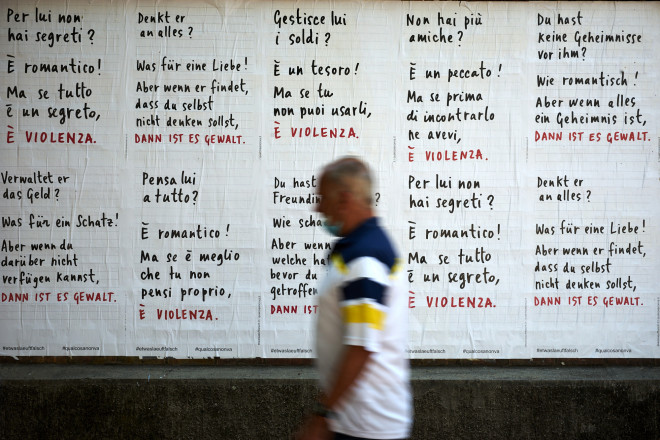 Per lui non
hai segreti?
È romantico!
Ma se tutto
è un segreto,
È VIOLENZA.
Denkt er
an alles?
Was für eine Liebe!
Aber wenn er findet,
dass du selbst
nicht denken sollst,
DANN IST ES GEWALT.
Gestisce lui
i soldi?
È un tesoro!
Ma se tu
non puoi usarli,
È VIOLENZA.
Non hai più
amiche?
È un peccato!
Ma se prima
di incontrarlo
ne avevi,
È VIOLENZA.
Du hast
keine Geheimnisse
vor ihm?
Wie romantisch!
Aber wenn alles
ein Geheimnis ist,
DANN IST ES GEWALT.
Verwaltet er
das Geld?
Was für ein Schatz!
Aber wenn du
darüber nicht
verfügen kannst,
DANN IST ES GEWALT.
#etwaslaeuftfalsch #qualcosanonva
Pensa lui
a tutto?
È romantico!
Ma se è meglio
che tu non
pensi proprio,
È VIOLENZA.
#etwaslaeuftfalsch #qualcosanonva
Du hast
Freundin
Wie scha
Aber wenn
welche hat
bevor du
getroffen
DANN IST
#etwaslaeuftfalsch
Per lui non
hai segreti?
È romantico!
Ma se tutto
è un segreto,
È VIOLENZA.
#etwaslaeuftfalsch #qualcosanonva
Denkt er
an alles?
Was für eine Liebe!
Aber wenn er findet,
dass du selbst
nicht denken sollst,
DANN IST ES GEWALT.
#etwaslaeuftfalsch #qualcosanonva